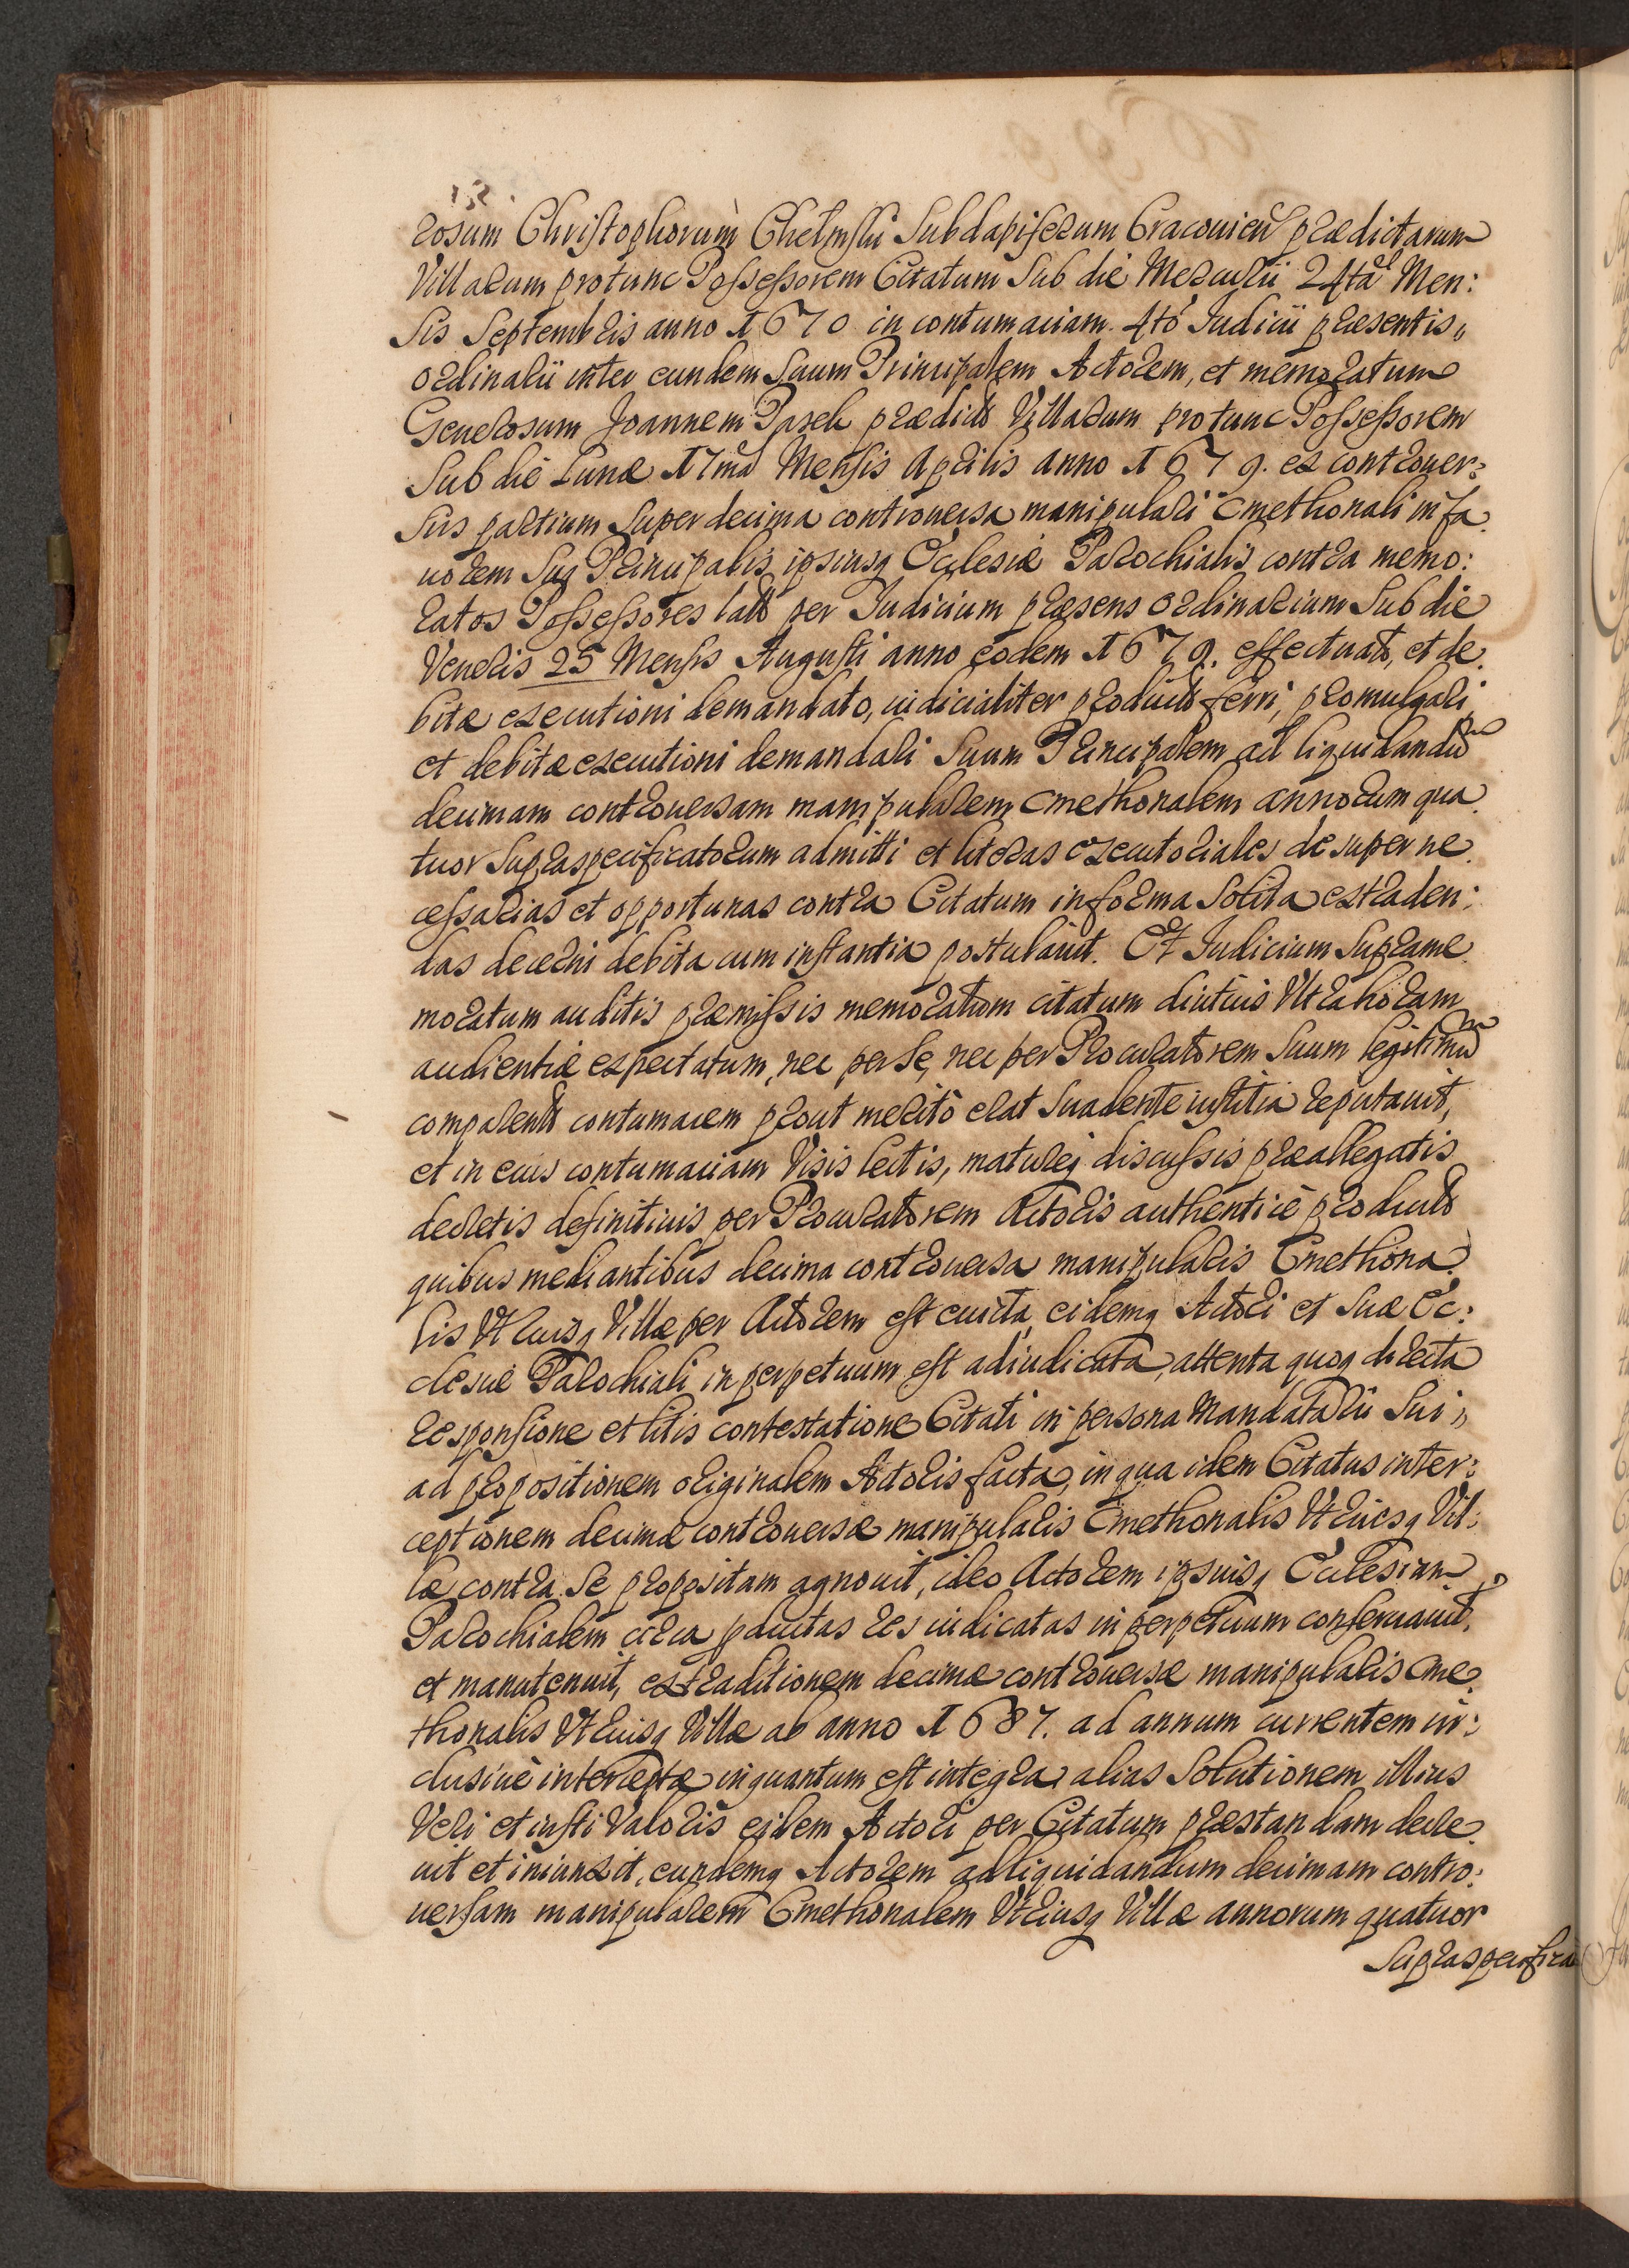 rosum Christophorum Chełmski Subdapiferum Cracouien prædictarum
Villarum protunc Possessorem Citatum Sub die Mercurii 24ta Men:
sis Septembris anno 1670 in contumaciam. 4to Iudicii præsentis
ordinarii inter eundem Suum Principalem Actorem, et memoratum
Generosum Joannem Pasek prædict Villarum protunc Possessorem
Sub die Lunæ 17ma Mensis Aprilis anno 1679. ex controuer:
sus partium Super decima controuersa manipulari Cmethonali in fa
uorem Sui Principalis ipsiusq Ecclesiæ Parochialis contra memo:
ratos Possessores lat per Iudicium præsens ordinarium Sub die
Veneris 25 Mensis Augusti anno eodem 1679. effectuat, et de
bitæ executioni demandato, iudicialiter product ferri, promulgari
et debitæ executioni demandari Suum Principalem ad liquidandu
decimam controuersam manipularem Cmethonalem annorum qua
tuor Supraspecificatorum admitti et literas executoriales desuper ne
cessarias et opportunas contra Citatum in forma Solita extraden:
das decerni debita cum instantia postulauit. Et Iudicium Suprame
moratum auditis præmissis memoratum citatum diutius Vltra horam
audientiæ expectatum, nec per se, nec per Procuratorem Suum legitimu
comparent contumacem prout merito erat Suadente iustitia reputauit,
et in eius contumaciam Visis lectis, matureq discussis præallegatis
decretis definitiuis per Procuratorem Actoris authentice product
quibus mediantibus decima controuersa manipularis Cmethona
lis Vtriusq Villæ per Actorem est euicta, eidemq Actori et Suæ Ec:
clesiæ Parochiali in perpetuum est adiudicata, attenta quoq directa
responsione et litis contestatione Citati in persona Mandatarii Sui
ad propositionem originalem Actoris facta, in qua idem Citatus inter:
ceptionem decimæ controuersæ manipularis Cmethonalis Vtriusq Vil:
læ contra Se propositam agnouit, ideo Actorem ipsiusq Ecclesiam
Parochialem circa res iudicatas in perpetuum conseruauit,
et manutenuit, extraditionem decimæ controuersæ manipularis Cme
thonalis Vtriusq Villæ ab anno 1687. ad annum currentem in:
clusiuè interceptæ inquantum est integra, alias Solutionem illius
Veri et iusti Valoris eidem Actori per Citatum præstandam decre
uit et iniunxit, eundemq Actorem ad liquidandum decimam contro:
uersam manipularem Cmethonalem Vtriusq Villæ annorum quatuor
Supraspecifica